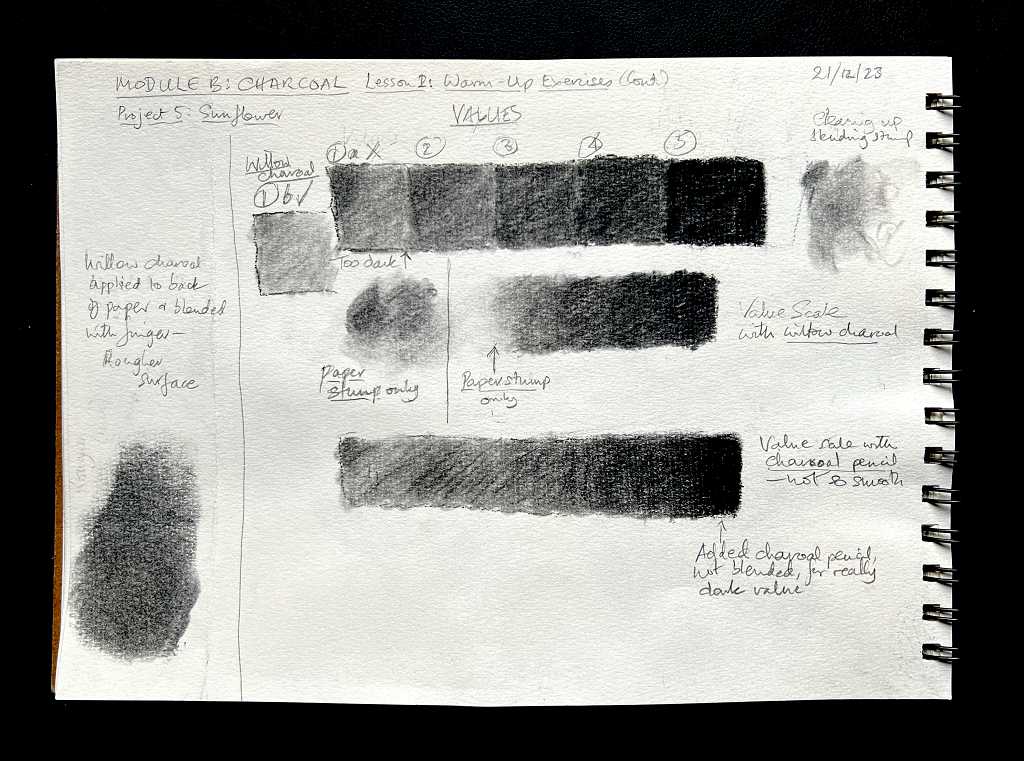 MODULE B: CHARCOAL Lesson 2: Warm-Up Exercises (Cont)
21/12/23
Project 5: Sunflower
VALUES
Cleaning up
blending stump
Willow
charcoal
① b ✓
① a X
②
③
④
⑤
Too dark ↑
Willow charcoal
applied to back
of paper & blended
with finger —
Rougher
surface
Paper
stump only
Paper stump
only
Value Scale
with willow charcoal
Value scale with
charcoal pencil
— not so smooth
Added charcoal pencil,
not blended, for really
dark value